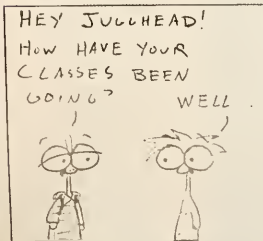 HEY JUGGHEAD!
HOW HAVE YOUR
CLASSES BEEN
GOING?
WELL.